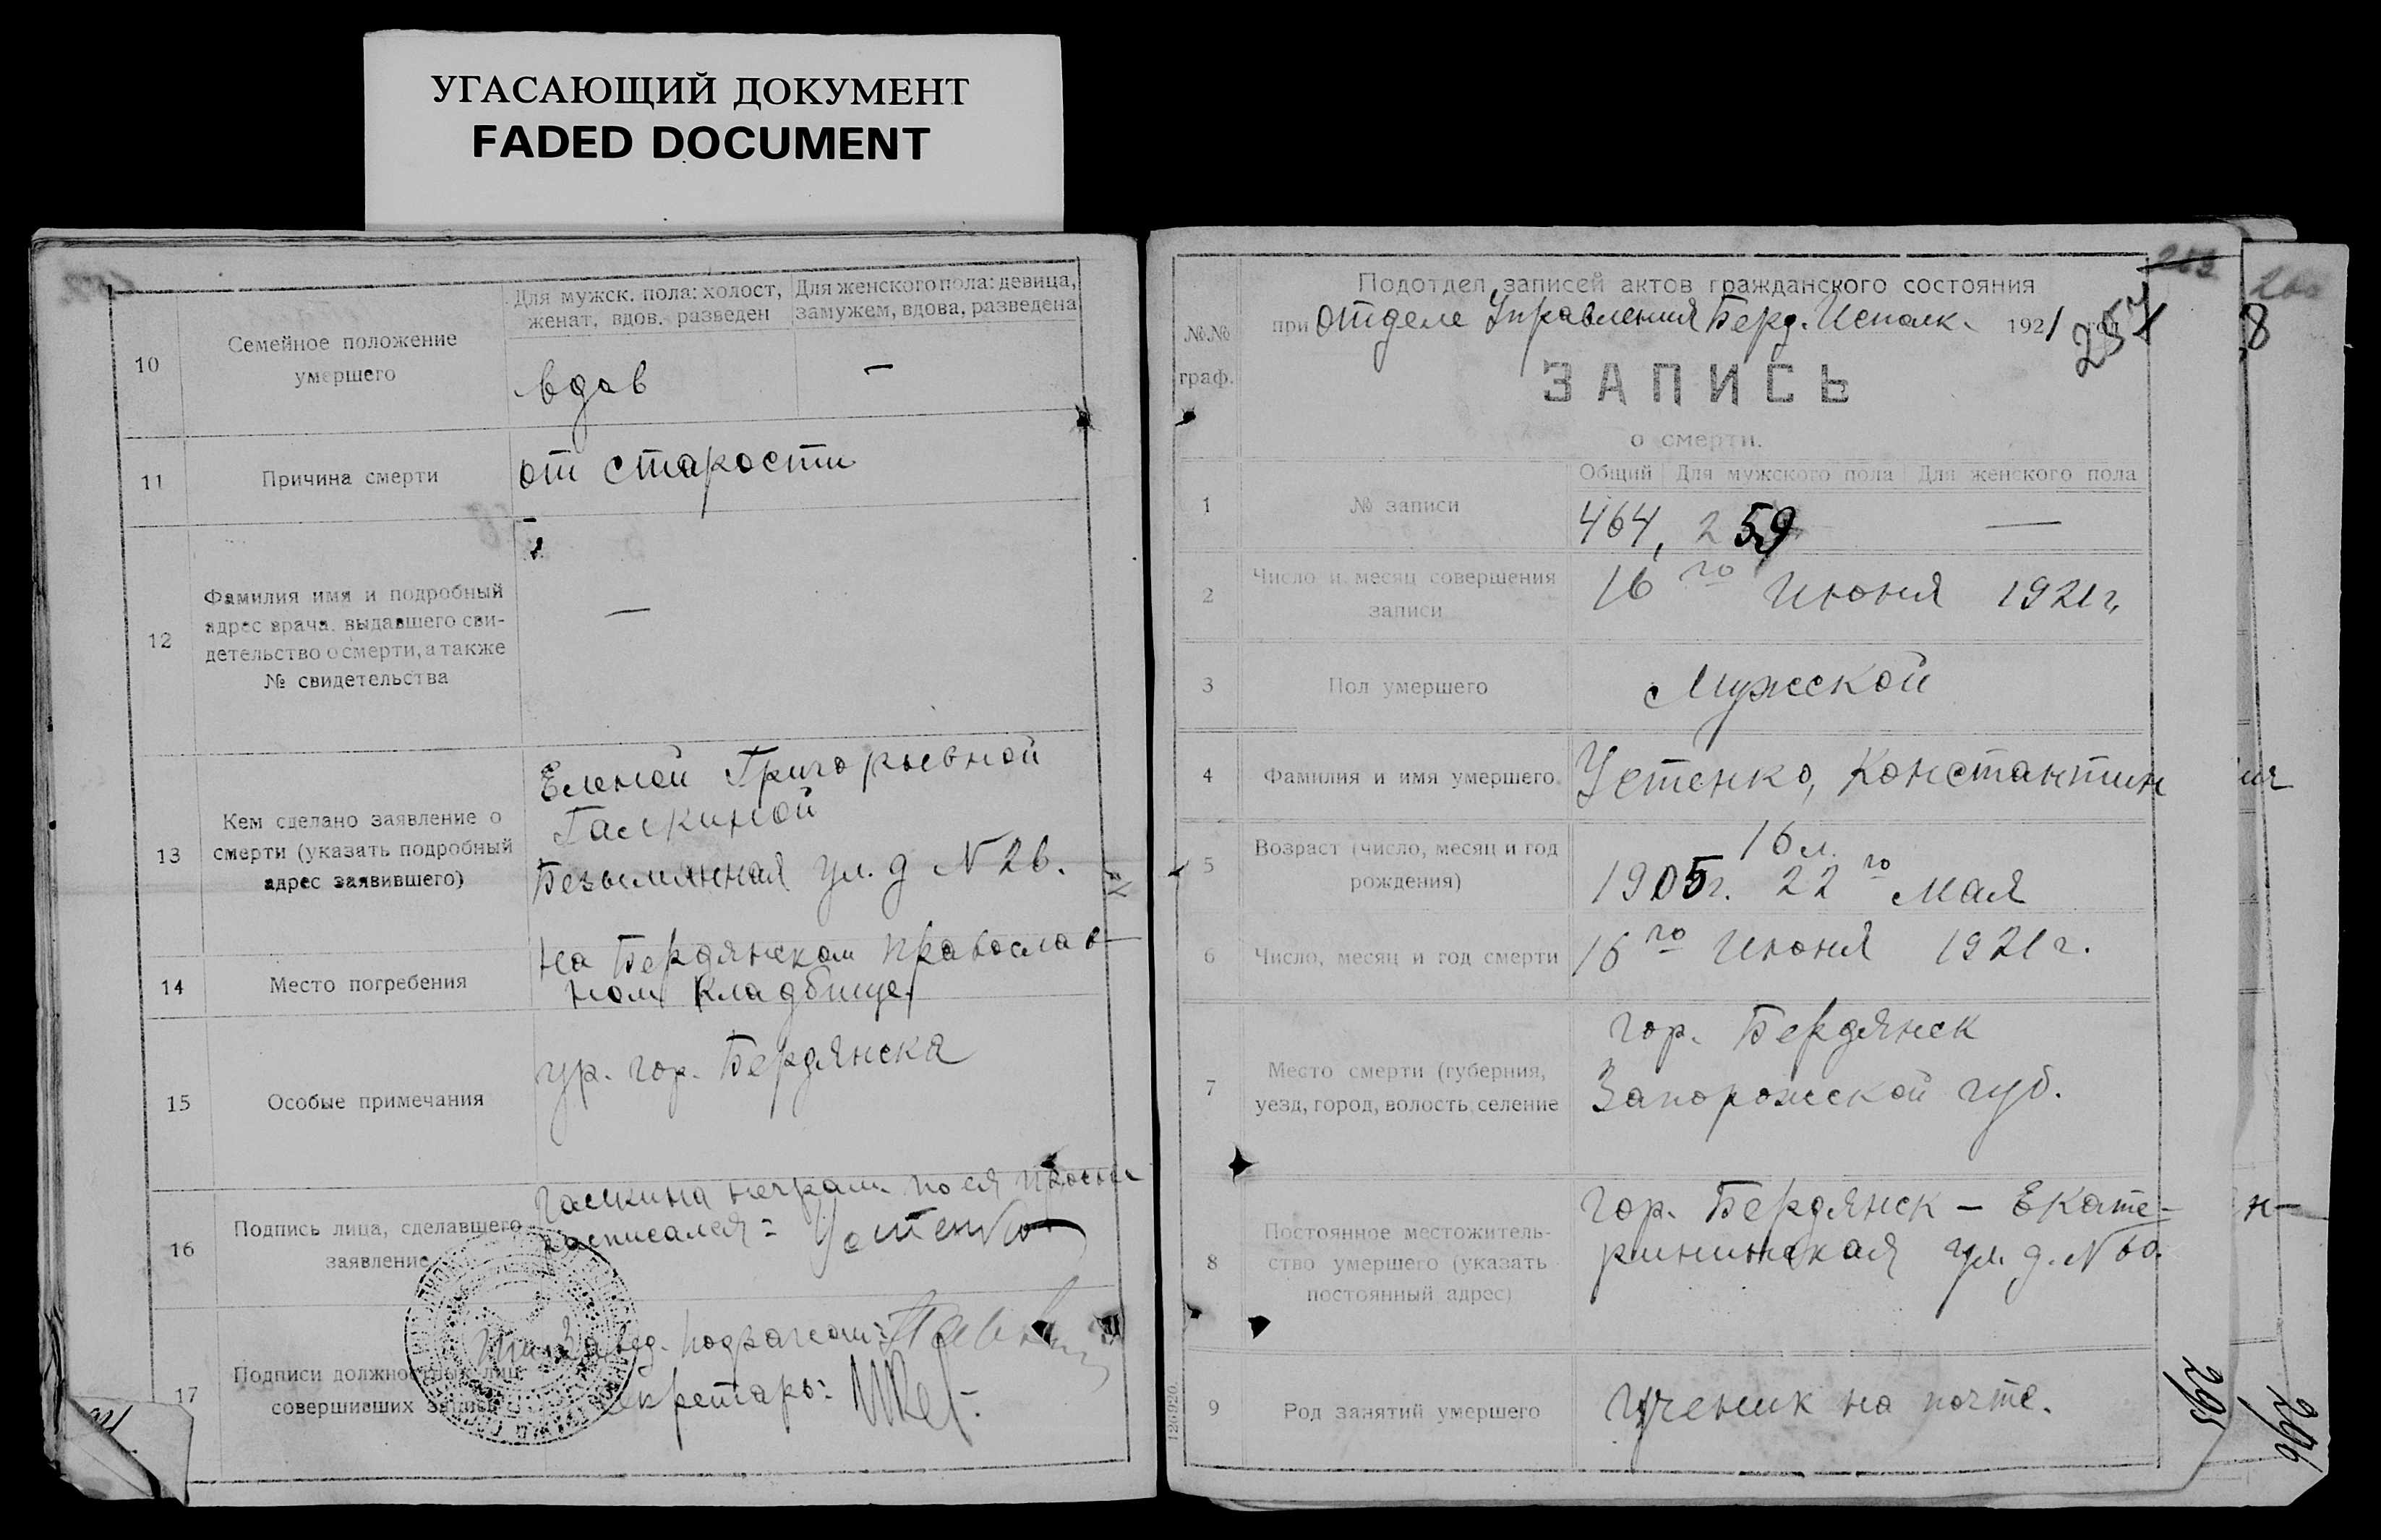 УГАСАЮЩИЙ ДОКУМЕНТ
FADED DOCUMENT
10
Семейное положение
умершего
Для мужск. пола: холост,
женат, вдов, разведен
Для женского пола: девица,
замужем, вдова, разведена
вдов
—
11
Причина смерти
от старости
12
Фамилия имя и подробный
адрес врача, выдавшего сви-
детельство о смерти, а также
№ свидетельства
—
13
Кем сделано заявление о
смерти (указать подробный
адрес заявившего)
Еленой Григорьевной
Галкиной
Безымянная ул. д N 26.
14
Место погребения
на Бердянском православ-
ном кладбище.
15
Особые примечания
ур. гор. Бердянска
16
Подпись лица, сделавшего
заявление
Галкина неграм. по ея просьбе
расписался = Устенко
17
Подписи должностных лиц
совершивших запись
Завед. подразом:
Секретарь:
Подотдел записей актов гражданского состояния
при Отделе Управления Берд. Исполк. 1921 год
257
№.№
граф.
ЗАПИСЬ
о смерти.
1
№ записи
Общий Для мужского пола Для женского пола
464, 259 —
2
Число и месяц совершения
записи
16го Июня 1921 г.
3
Пол умершего
Мужской
4
Фамилия и имя умершего
Устенко, Константин
5
Возраст (число, месяц и год
рождения)
16 л.
1905 г. 22го мая
6
Число, месяц и год смерти
16го Июня 1921 г.
7
Место смерти (губерния,
уезд, город, волость, селение
гор. Бердянск
Запорожской губ.
8
Постоянное местожитель-
ство умершего (указать
постоянный адрес)
гор. Бердянск – Екате-
рининская ул. д. N 60.
9
Род занятий умершего
Ученик на почте.
295
296